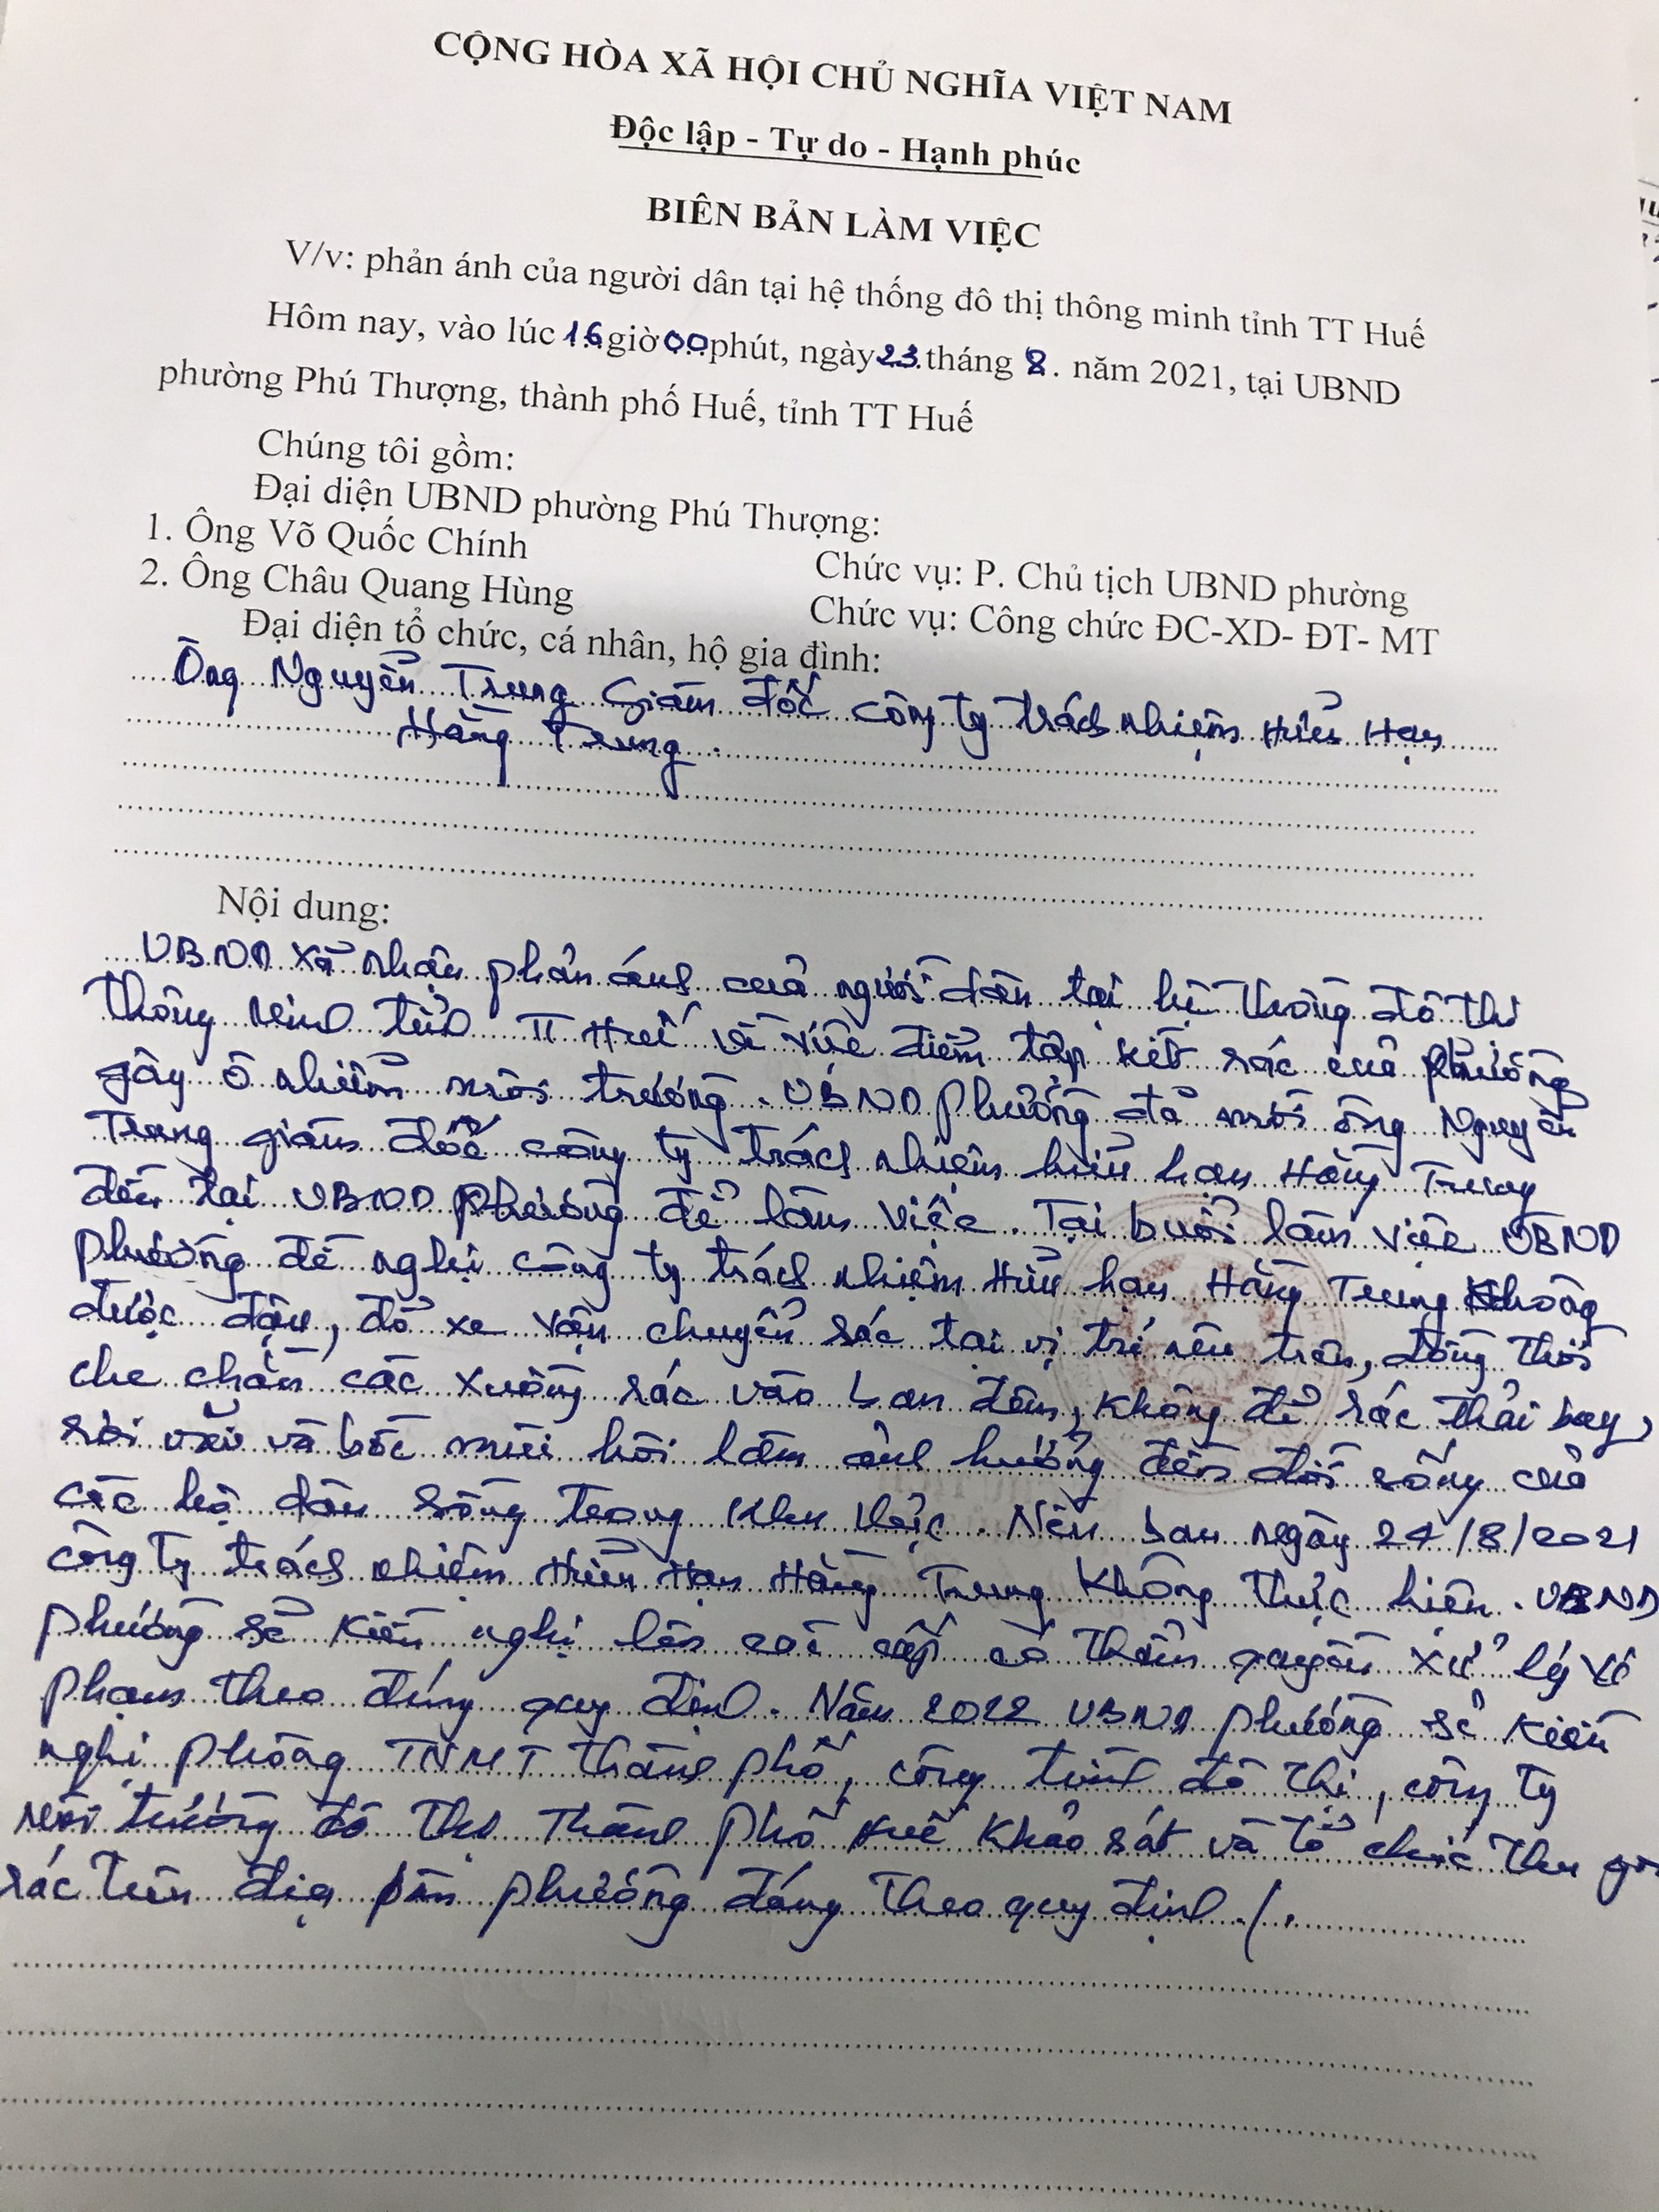 CỘNG HÒA XÃ HỘI CHỦ NGHĨA VIỆT NAM
Độc lập - Tự do - Hạnh phúc
BIÊN BẢN LÀM VIỆC
V/v: phản ánh của người dân tại hệ thống đô thị thông minh tỉnh TT Huế
Hôm nay, vào lúc 16 giờ 00 phút, ngày 23 tháng 8. năm 2021, tại UBND
phường Phú Thượng, thành phố Huế, tỉnh TT Huế
Chúng tôi gồm:
Đại diện UBND phường Phú Thượng:
1. Ông Võ Quốc Chính Chức vụ: P. Chủ tịch UBND phường
2. Ông Châu Quang Hùng Chức vụ: Công chức ĐC-XD- ĐT- MT
Đại diện tổ chức, cá nhân, hộ gia đình:
Ông Nguyễn Trung Giám đốc công ty trách nhiệm Hữu Hạn
Hằng Trung.
Nội dung:
UBND xã nhận phản ánh của người dân tại hệ thống đô thị
thông minh tỉnh TT Huế về việc điểm tập kết rác của phường
gây ô nhiễm môi trường. UBND phường đã mời ông Nguyễn
Trung giám đốc công ty trách nhiệm hữu hạn Hằng Trung
đến tại UBND phường để làm việc. Tại buổi làm việc UBND
phường đề nghị công ty trách nhiệm Hữu hạn Hằng Trung không
được đậu, đổ xe vận chuyển rác tại vị trí nêu trên, đồng thời
che chắn các xuồng rác vào ban đêm, không để rác thải bay,
rơi vãi và bốc mùi hôi làm ảnh hưởng đến đời sống của
các hộ dân sống trong khu vực. Nếu sau ngày 24/8/2021
công ty trách nhiệm Hữu Hạn Hằng Trung không thực hiện. UBND
phường sẽ kiến nghị lên các cấp có thẩm quyền xử lý vi
phạm theo đúng quy định. Năm 2022 UBND phường sẽ kiến
nghị phòng TNMT thành phố, công trình đô thị, công ty
môi trường đô thị Thành phố Huế khảo sát và tổ chức thu gom
rác trên địa bàn phường đúng theo quy định./.